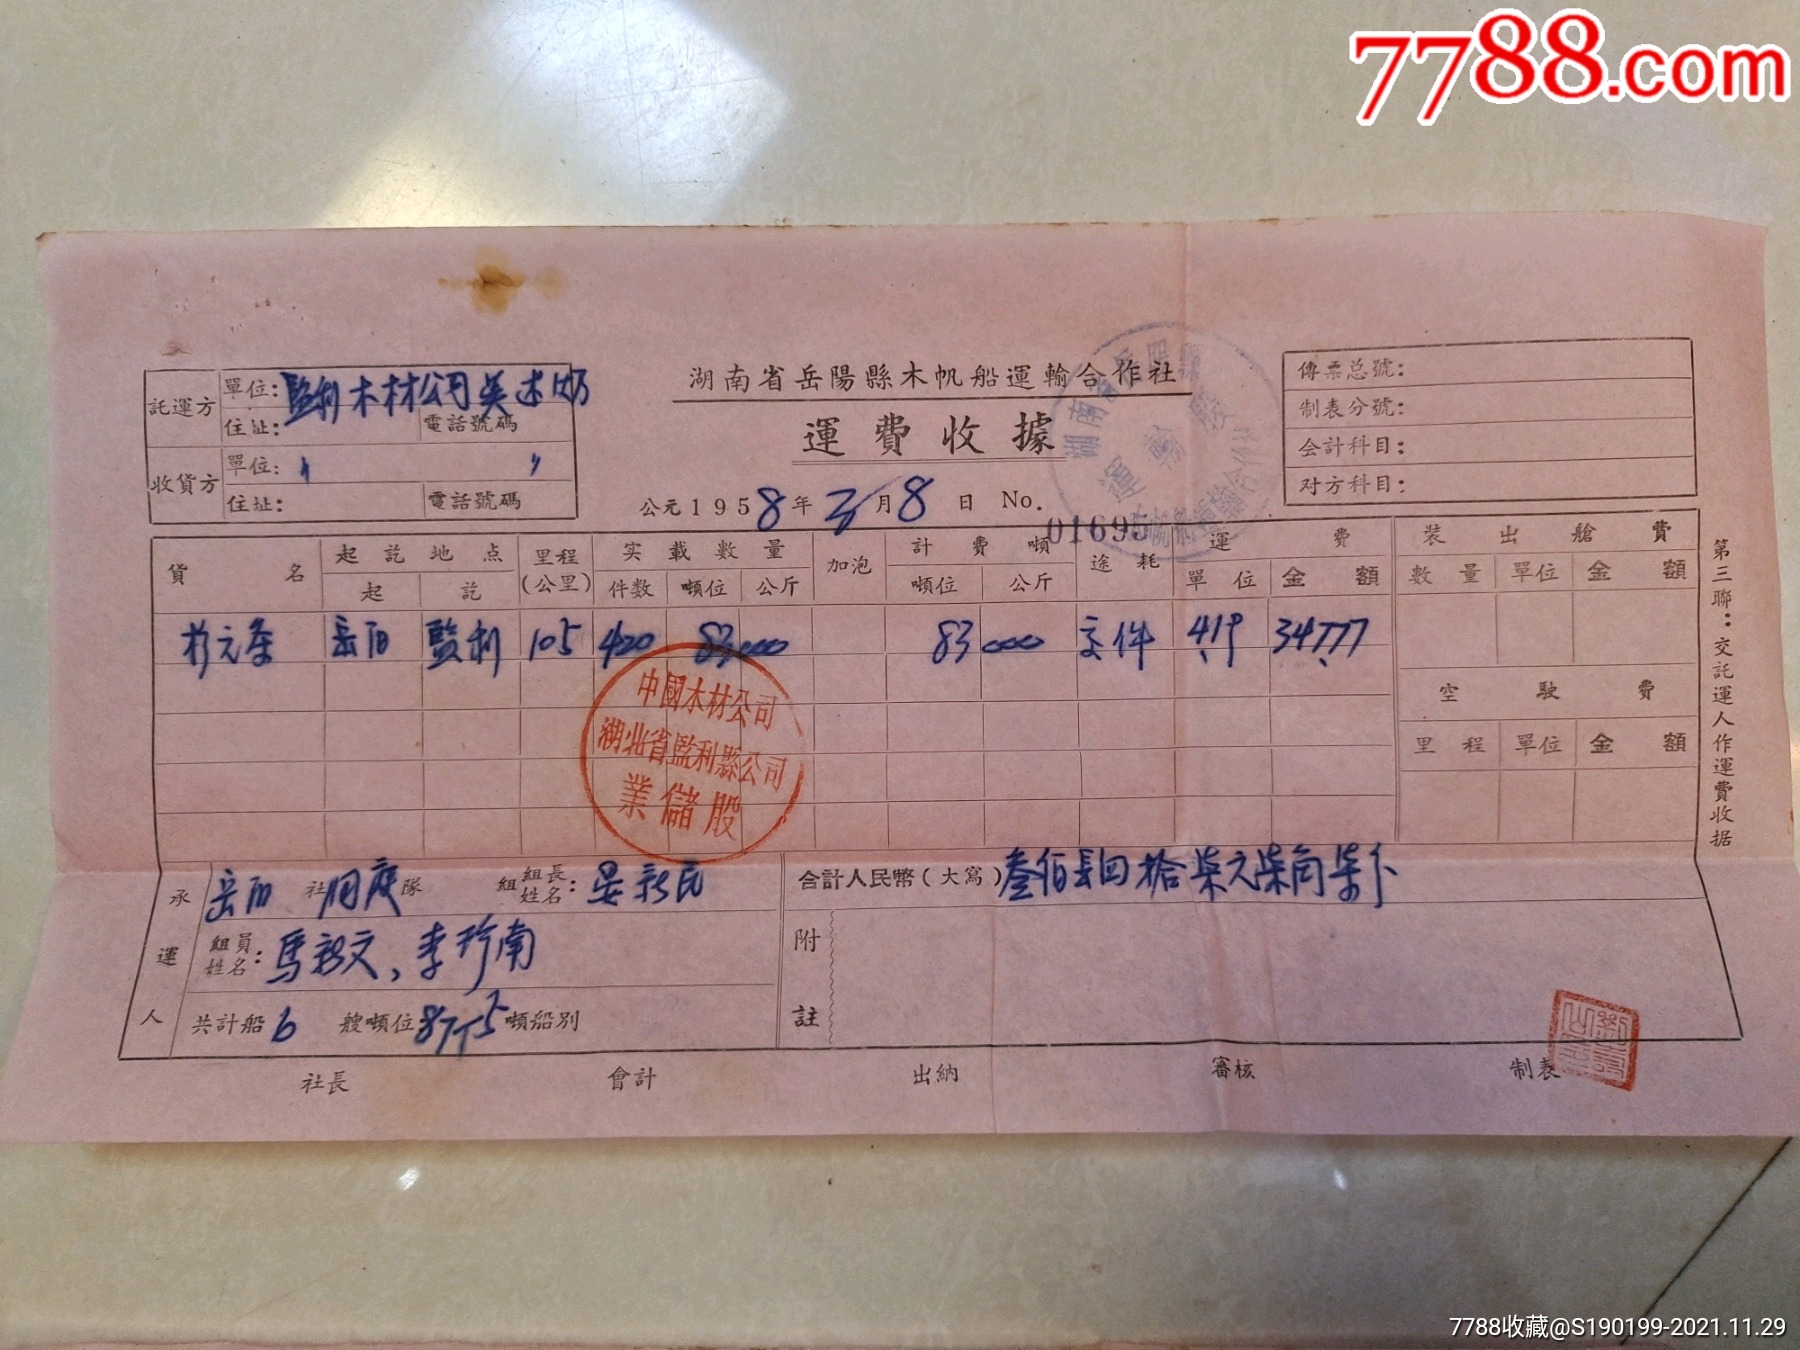 7788.com
湖南省岳陽縣木帆船運輸合作社
運費收據
公元1958年3月8日 No. 01695
託運方 單位: 監利木材公司
住址: 電話號碼
收貨方 單位: 〃 〃
住址: 電話號碼
傳票总號:
制表分號:
会計科目:
对方科目:
貨名 起訖地点 里程(公里) 实載數量 加泡 計費噸 途耗 運費 装出艙費
起 訖 件数 噸位 公斤 噸位 公斤 單位 金額 數量 單位 金額
杉元条 岳阳 監利 105 420 83 000 83 000 交件 4.19 347.77
空駛費
里程 單位 金額
中國木材公司
湖北省監利縣公司
業儲股
承運人
岳阳社 洞庭隊 組 組長姓名: 晏新民
組員姓名: 馬新文, 李珍南
共計船6艘噸位87.5噸船別
合計人民幣(大寫) 叁佰肆拾柒元柒角柒分
附註
社長 會計 出納 審核 制表
第三聯:交託運人作運費收据
7788收藏@S190199-2021.11.29